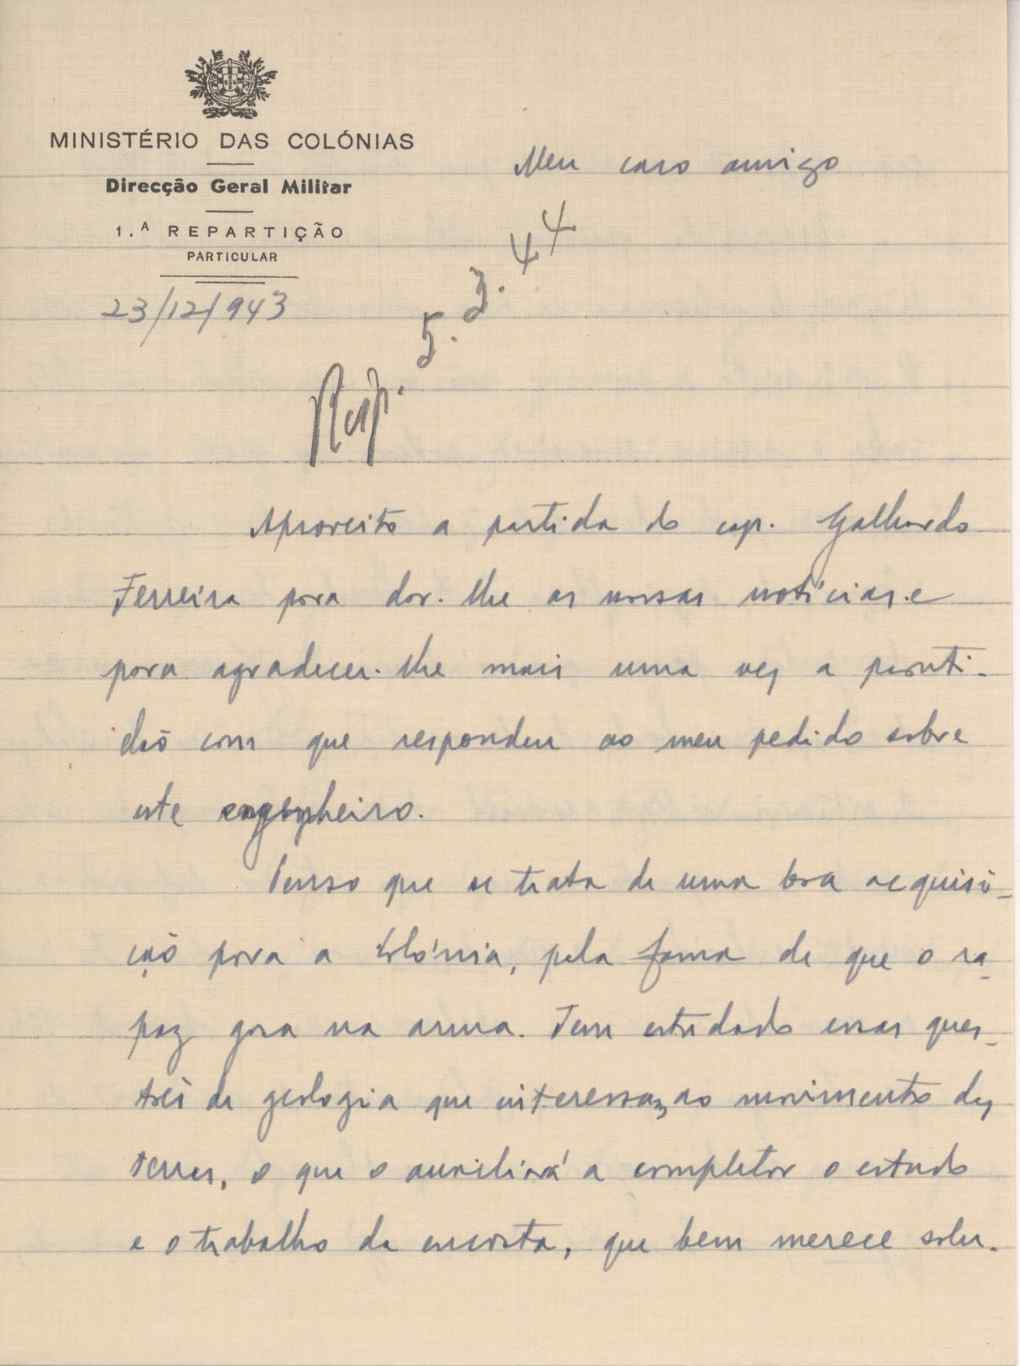 MINISTÉRIO DAS COLÓNIAS
Direcção Geral Militar
1.ª REPARTIÇÃO
PARTICULAR
23/12/943
Meu caro amigo
Resp. 5.3.44
Aproveito a partida do cap. Galhardo
Ferreira para dar-lhe as nossas notícias e
para agradecer-lhe mais uma vez a pronti-
dão com que respondeu ao meu pedido sobre
este engenheiro.
Penso que se trata de uma boa acquisi-
ção para a Colónia, pela fama de que o ra-
paz goza na arma. Tem estudado essas ques-
tões de geologia que interessam ao movimento das
terras, o que o auxiliará a completar o estudo
e o trabalho da encosta, que bem merece solu-